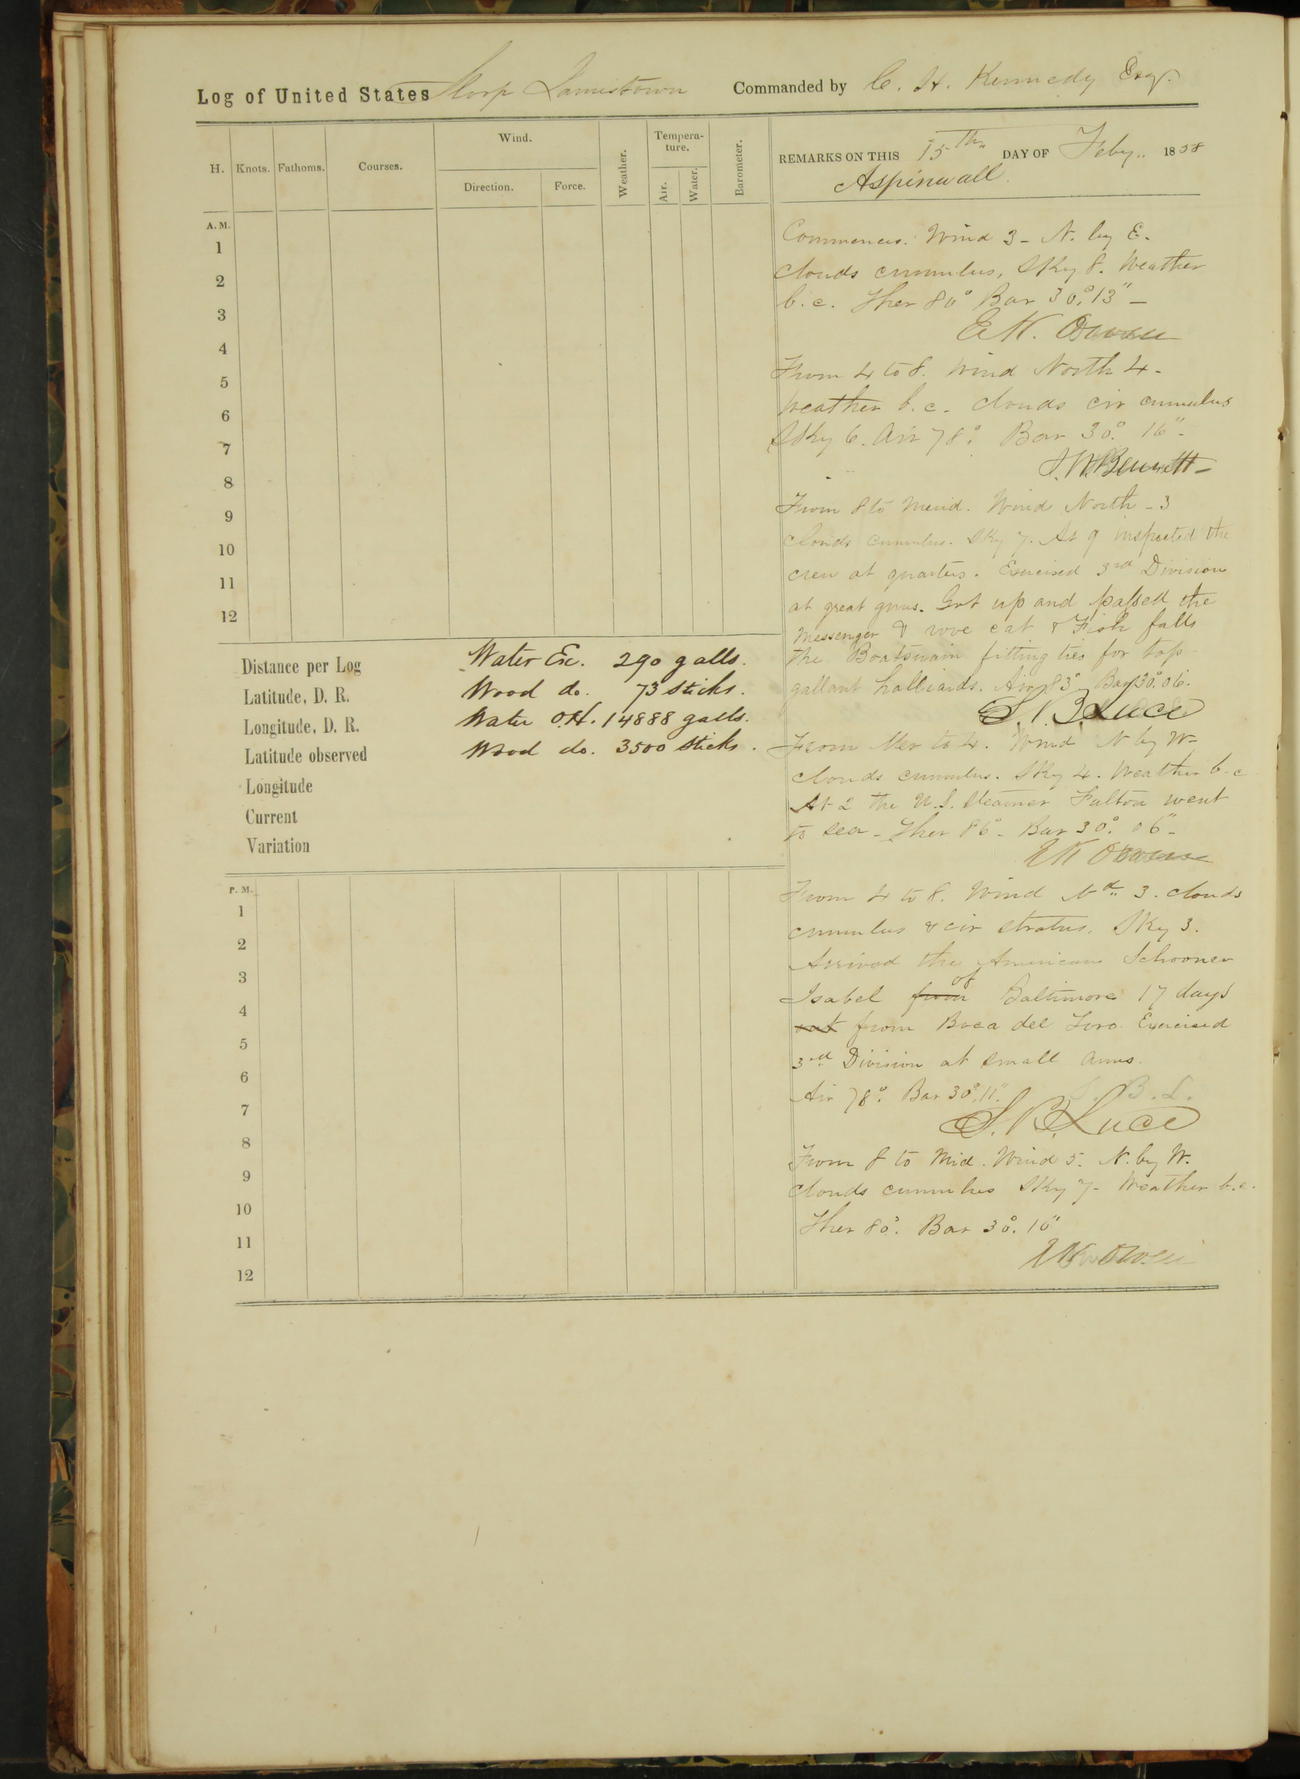 Log of United States Sloop Jamestown Commanded by C. H. Kennedy Esq.
H. Knots. Fathoms. Courses. Wind. Direction. Force. Weather. Tempera-ture. Air. Water. Barometer.
REMARKS ON THIS 15th DAY OF Feby.. 1858
Aspinwall.
A.M.
1
2
3
4
5
6
7
8
9
10
11
12
Commences. Wind 3 - N. by E.
clouds cumulus, Sky 8. Weather
b.c. Ther 80° Bar 30.°13" -
From 4 to 8. Wind North 4 -
Weather b.c. clouds cir cumulus
Sky 6. Air 78° Bar 30.° 16".
From 8 to Merid. Wind North - 3
clouds cumulus. Sky 7. At 9 inspected the
crew at quarters. Exercised 3rd Division
at great guns. Got up and passed the
Messenger & rove cat & Fish falls
the Boatswain fitting ties for top-
gallant halliards. Air 83° Bar 30°.06.
S. B. Luce
From Mer to 4. Wind N by W-
clouds cumulus. Sky 4. Weather b.c
At 2 the U.S. Steamer Fulton went
to sea - Ther 86° - Bar 30°. 06"-
From 4 to 8. Wind Nd.. 3. clouds
cumulus & cir stratus. Sky 3.
Arrived the American Schooner
Isabel from of Baltimore 17 days
from Boca del Toro. Exercised
3rd Division at small arms.
Air 78° Bar 30°.11" S. B. L.
S. B. Luce
From 8 to Mid. Wind 5. N. by W.
clouds cumulus Sky 7- Weather b.c.
Ther 80°. Bar 30°. 10"
Distance per Log
Latitude, D. R.
Longitude, D. R.
Latitude observed
Longitude
Current
Variation
Water Ex. 290 galls.
Wood do. 73 sticks.
Water O.H. 14888 galls.
Wood do. 3500 sticks.
P. M.
1
2
3
4
5
6
7
8
9
10
11
12